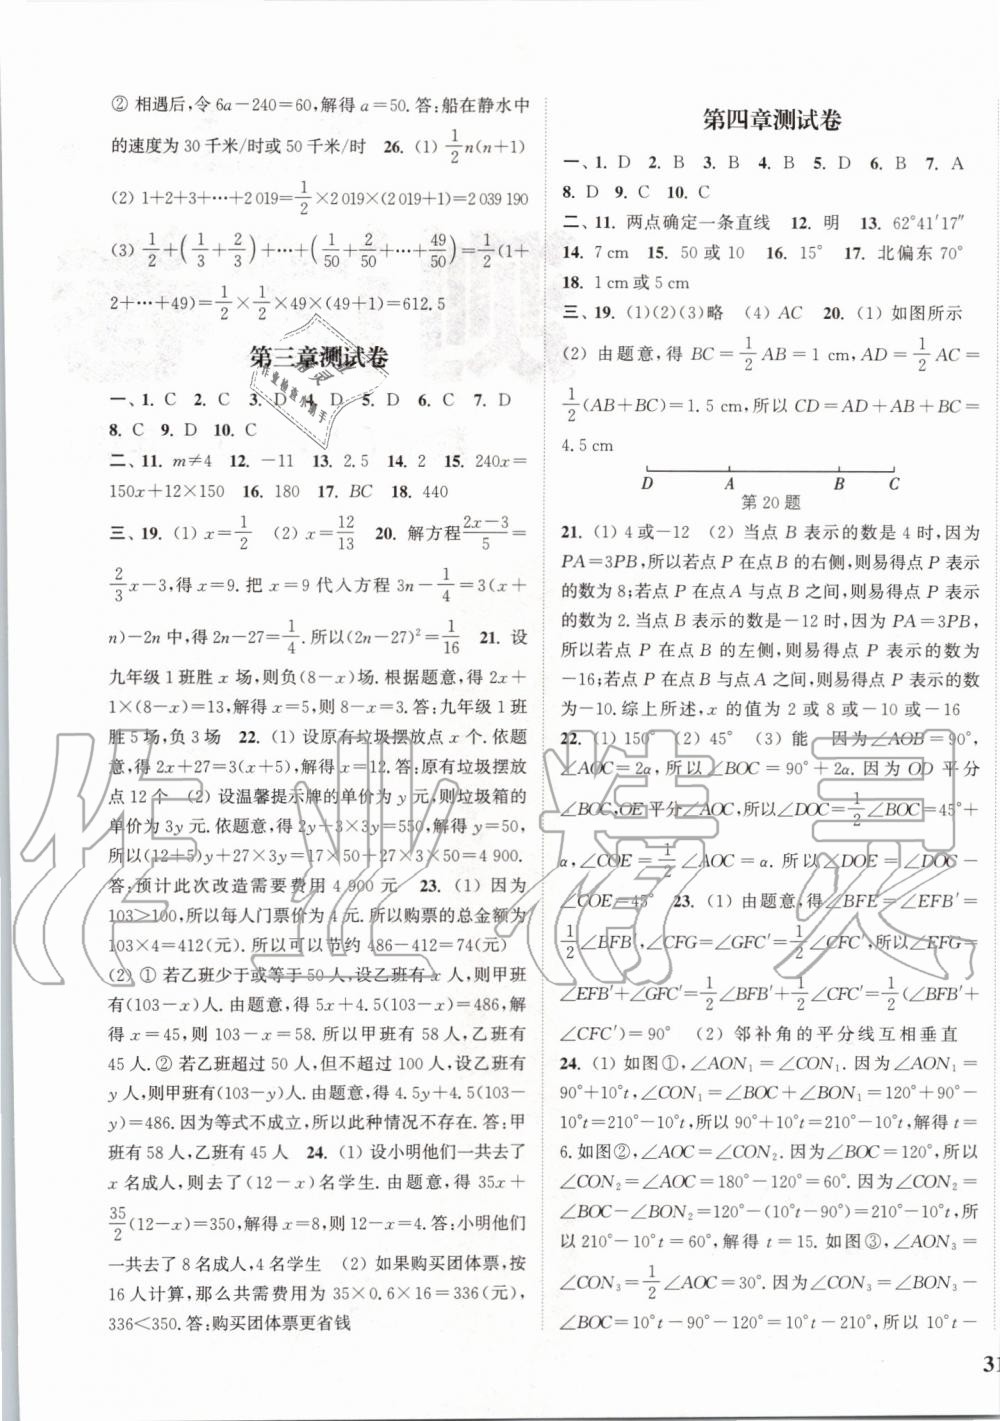 ② 相遇后,令 6a−240=60,解得 a=50.答:船在静水中
的速度为 30 千米/时或 50 千米/时 26. (1) 1/2 n(n+1)
(2) 1+2+3+…+2 019=1/2×2 019×(2 019+1)=2 039 190
(3) 1/2+(1/3+2/3)+…+(1/50+2/50+…+49/50)=1/2(1+
2+…+49)=1/2×1/2×49×(49+1)=612.5
第三章测试卷
一、1. C 2. C 3. D 4. D 5. D 6. C 7. D
8. C 9. D 10. C
二、11. m≠4 12. −11 13. 2.5 14. 2 15. 240x=
150x+12×150 16. 180 17. BC 18. 440
三、19. (1) x=1/2 (2) x=12/13 20. 解方程(2x−3)/5=
2/3 x−3,得 x=9. 把 x=9 代入方程 3n−1/4=3(x+
n)−2n 中,得 2n−27=1/4.所以(2n−27)²=1/16 21. 设
九年级 1 班胜 x 场,则负(8−x)场.根据题意,得 2x+
1×(8−x)=13,解得 x=5,则 8−x=3.答:九年级 1 班
胜 5 场,负 3 场 22. (1) 设原有垃圾摆放点 x 个.依题
意,得 2x+27=3(x+5),解得 x=12.答:原有垃圾摆放
点 12 个 (2) 设温馨提示牌的单价为 y 元,则垃圾箱的
单价为 3y 元.依题意,得 2y+3×3y=550,解得 y=50,
所以(12+5)y+27×3y=17×50+27×3×50=4 900.
答:预计此次改造需要费用 4 900 元 23. (1) 因为
103>100,所以每人门票价为 4 元.所以购票的总金额为
103×4=412(元).所以可以节约 486−412=74(元)
(2) ① 若乙班少于或等于 50 人,设乙班有 x 人,则甲班
有(103−x)人.由题意,得 5x+4.5(103−x)=486,解
得 x=45,则 103−x=58.所以甲班有 58 人,乙班有 45
人.② 若乙班超过 50 人,但不超过 100 人,设乙班有
y 人,则甲班有(103−y)人.由题意,得 4.5y+4.5(103−
y)=486.因为等式不成立,所以此种情况不存在.答:甲
班有 58 人,乙班有 45 人 24. (1) 设小明他们一共去了
x 名成人,则去了(12−x)名学生.由题意,得 35x+
35/2(12−x)=350,解得 x=8,则 12−x=4.答:小明他们
一共去了 8 名成人,4 名学生 (2) 如果购买团体票,按
16 人计算,那么共需费用为 35×0.6×16=336(元),
336<350.答:购买团体票更省钱
第四章测试卷
一、1. D 2. B 3. B 4. B 5. D 6. B 7. A
8. D 9. C 10. C
二、11. 两点确定一条直线 12. 明 13. 62°41′17″
14. 7 cm 15. 50 或 10 16. 15° 17. 北偏东 70°
18. 1 cm 或 5 cm
三、19. (1)(2)(3)略 (4) AC 20. (1) 如图所示
(2) 由题意,得 BC=1/2 AB=1 cm,AD=1/2 AC=
1/2(AB+BC)=1.5 cm,所以 CD=AD+AB+BC=
4.5 cm
D A B C
第 20 题
21. (1) 4 或−12 (2) 当点 B 表示的数是 4 时,因为
PA=3PB,所以若点 P 在点 B 的右侧,则易得点 P 表示
的数为 8;若点 P 在点 A 与点 B 之间,则易得点 P 表示
的数为 2.当点 B 表示的数是−12 时,因为 PA=3PB,
所以若点 P 在点 B 的左侧,则易得点 P 表示的数为
−16;若点 P 在点 B 与点 A 之间,则易得点 P 表示的数
为−10.综上所述,x 的值为 2 或 8 或−10 或−16
22. (1) 150° (2) 45° (3) 能 因为∠AOB=90°,
∠AOC=2α,所以∠BOC=90°+2α.因为 OD 平分
∠BOC,OE 平分∠AOC,所以∠DOC=1/2∠BOC=45°+
α,∠COE=1/2∠AOC=α.所以∠DOE=∠DOC−
∠COE=45° 23. (1) 由题意,得∠BFE=∠EFB′=
1/2∠BFB′,∠CFG=∠GFC′=1/2∠CFC′,所以∠EFG=
∠EFB′+∠GFC′=1/2∠BFB′+1/2∠CFC′=1/2(∠BFB′+
∠CFC′)=90° (2) 邻补角的平分线互相垂直
24. (1) 如图①,∠AON₁=∠CON₁.因为∠AON₁=
90°+10°t,∠CON₁=∠BOC+∠BON₁=120°+90°−
10°t=210°−10°t,所以 90°+10°t=210°−10°t,解得 t=
6.如图②,∠AOC=∠CON₂.因为∠BOC=120°,所以
∠CON₂=∠AOC=180°−120°=60°.因为∠CON₂=
∠BOC−∠BON₂=120°−(10°t−90°)=210°−10°t,所
以 210°−10°t=60°,解得 t=15.如图③,∠AON₃=
∠CON₃=1/2∠AOC=30°.因为∠CON₃=∠BON₃−
∠BOC=10°t−90°−120°=10°t−210°,所以 10°t−
31
作业精灵
作业检查小帮手